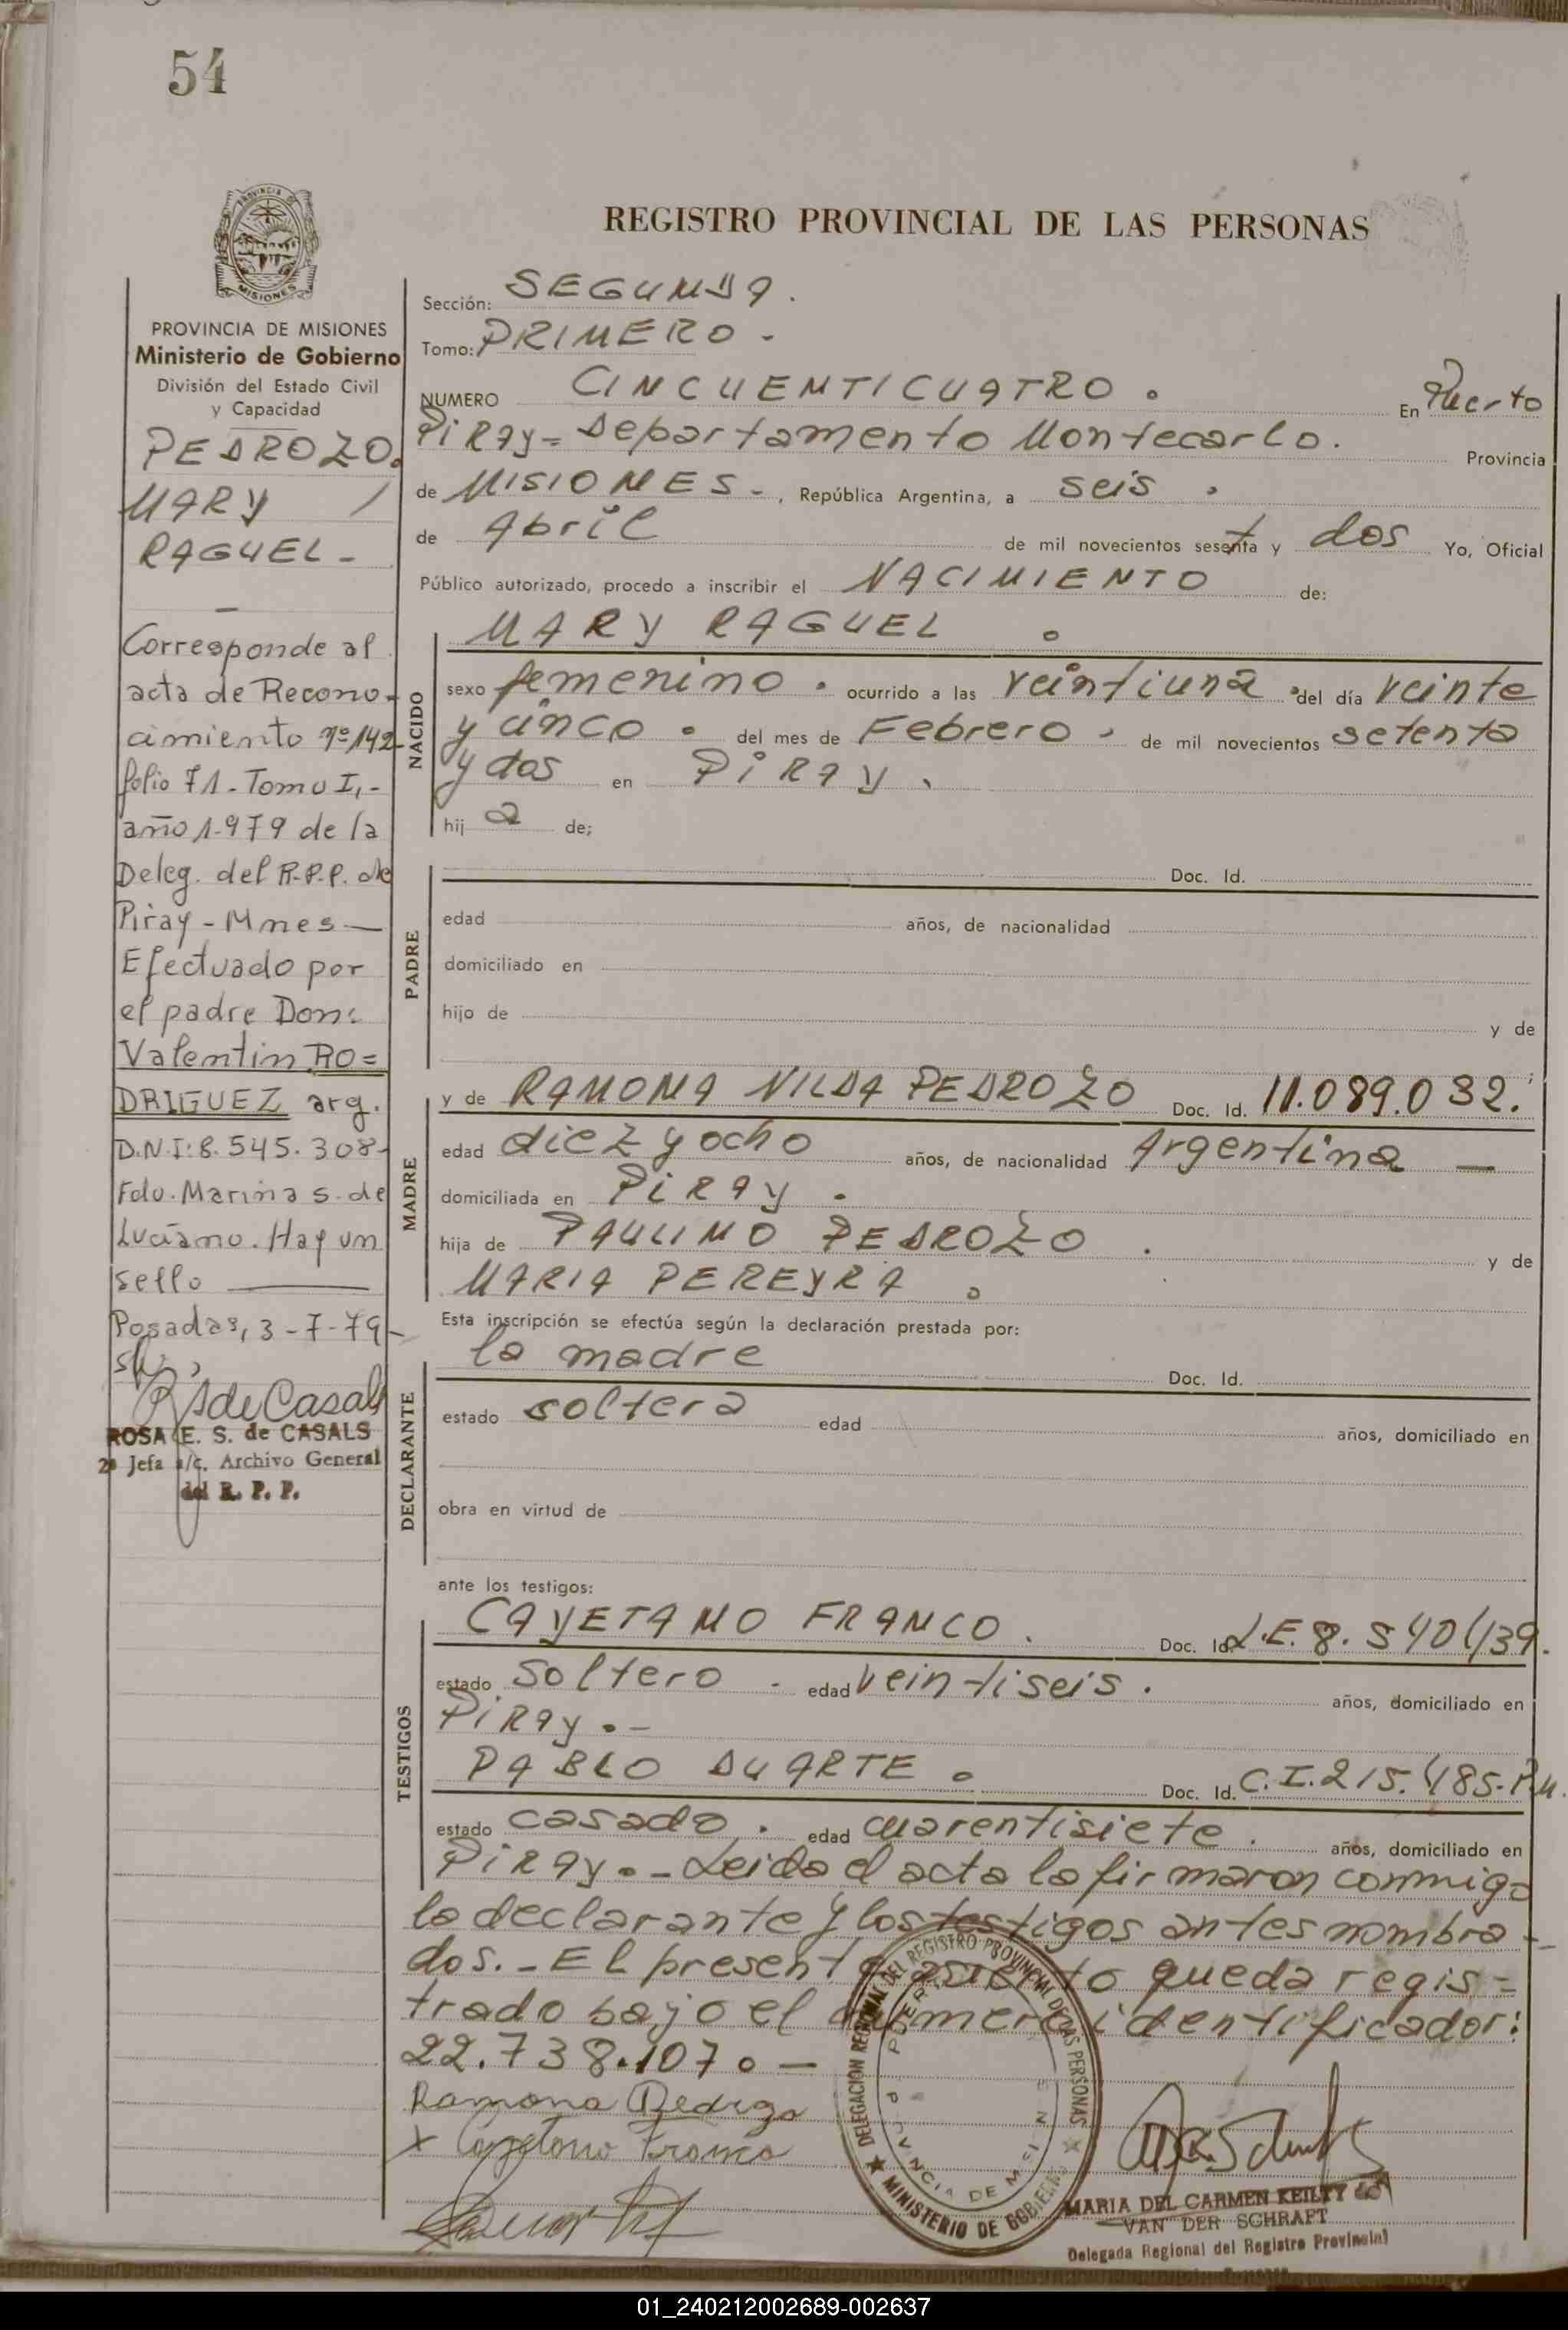 54
REGISTRO PROVINCIAL DE LAS PERSONAS
PROVINCIA DE MISIONES
Ministerio de Gobierno
División del Estado Civil
y Capacidad
PEDROZO.
MARY /
RAQUEL -
Corresponde al
acta de Recono-
cimiento nº 142-
folio 71 - Tomo I, -
año 1.979 de la
Deleg. del R.P.P. de
Piray - Mnes -
Efectuado por
el padre Don:
Valentin RO=
DRIGUEZ arg.
D.N.I: 8.545.308-
Fdo. Marina S. de
Luciano. Hay un
sello
Posadas, 3-7-79-
RSdeCasals
ROSA E. S. de CASALS
2ª Jefa a/c. Archivo General
del R. P. P.
Sección: SEGUNDA.
Tomo: PRIMERO -
NUMERO CINCUENTICUATRO. En Puerto
Piray = Departamento Montecarlo. Provincia
de MISIONES -, República Argentina, a seis.
de Abril de mil novecientos sesenta y dos Yo, Oficial
Público autorizado, procedo a inscribir el NACIMIENTO de:
NACIDO
MARY RAQUEL.
sexo femenino. ocurrido a las veintiuna. del día veinte
y cinco. del mes de Febrero. de mil novecientos setenta
y dos en PiRAy.
hij a de;
PADRE
Doc. Id.
edad años, de nacionalidad
domiciliado en
hijo de y de
MADRE
y de RAMONA NILDA PEDROZO Doc. Id. 11.089.032.
edad diez y ocho años, de nacionalidad Argentina -
domiciliada en PiRAy.
hija de PAULINO PEDROZO. y de
MARIA PEREYRA.
Esta inscripción se efectúa según la declaración prestada por:
DECLARANTE
la madre Doc. Id.
estado soltera edad años, domiciliado en
obra en virtud de
ante los testigos:
TESTIGOS
CAYETANO FRANCO. Doc. Id. L.E. 8.540.139.
estado soltero. edad veintiseis. años, domiciliado en
PiRAy. -
PABLO DUARTE. Doc. Id. C.I. 215.485-
estado casado. edad cuarentisiete. años, domiciliado en
PiRAy. - Leida el acta la firmaron conmigo
la declarante y los testigos antes nombra-
dos. - El presente asiento queda regis=
trado bajo el numero identificador:
22.738.107. -
Ramona Pedrozo
x Cayetano Franco
DELEGACION REGIONAL DEL REGISTRO PROVINCIAL DE LAS PERSONAS
PROVINCIA DE MISIONES
★ MINISTERIO DE GOBIERNO ★
MARIA DEL CARMEN KEILTY de
VAN DER SCHRAFT
Delegada Regional del Registro Provincial
01_240212002689-002637